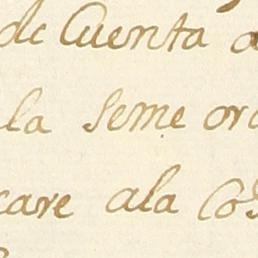 de Cuenta a
la seme ord
care ala Co